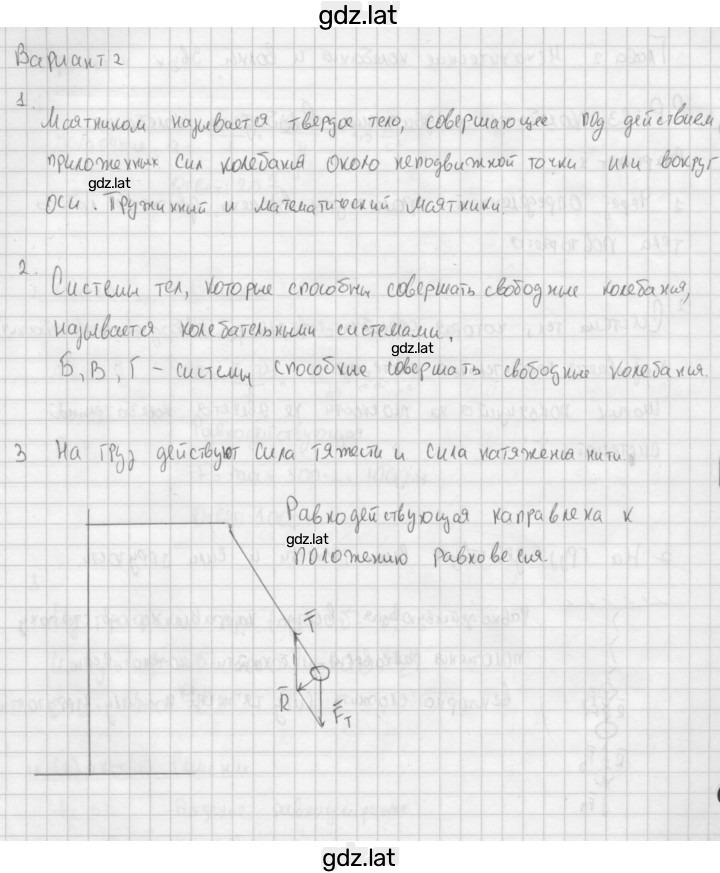 gdz.lat
Вариант 2
1.
Маятником называется твердое тело, совершающее под действием
приложенных сил колебания около неподвижной точки или вокруг
gdz.lat
оси. Пружинный и математический маятники.
2.
Системы тел, которые способны совершать свободные колебания,
называется колебательными системами.
gdz.lat
Б, В, Г - системы способные совершать свободные колебания.
3 На груз действуют сила тяжести и сила натяжения нити.
Равнодействующая направлена к
gdz.lat
положению равновесия.
T
R
F_T
gdz.lat